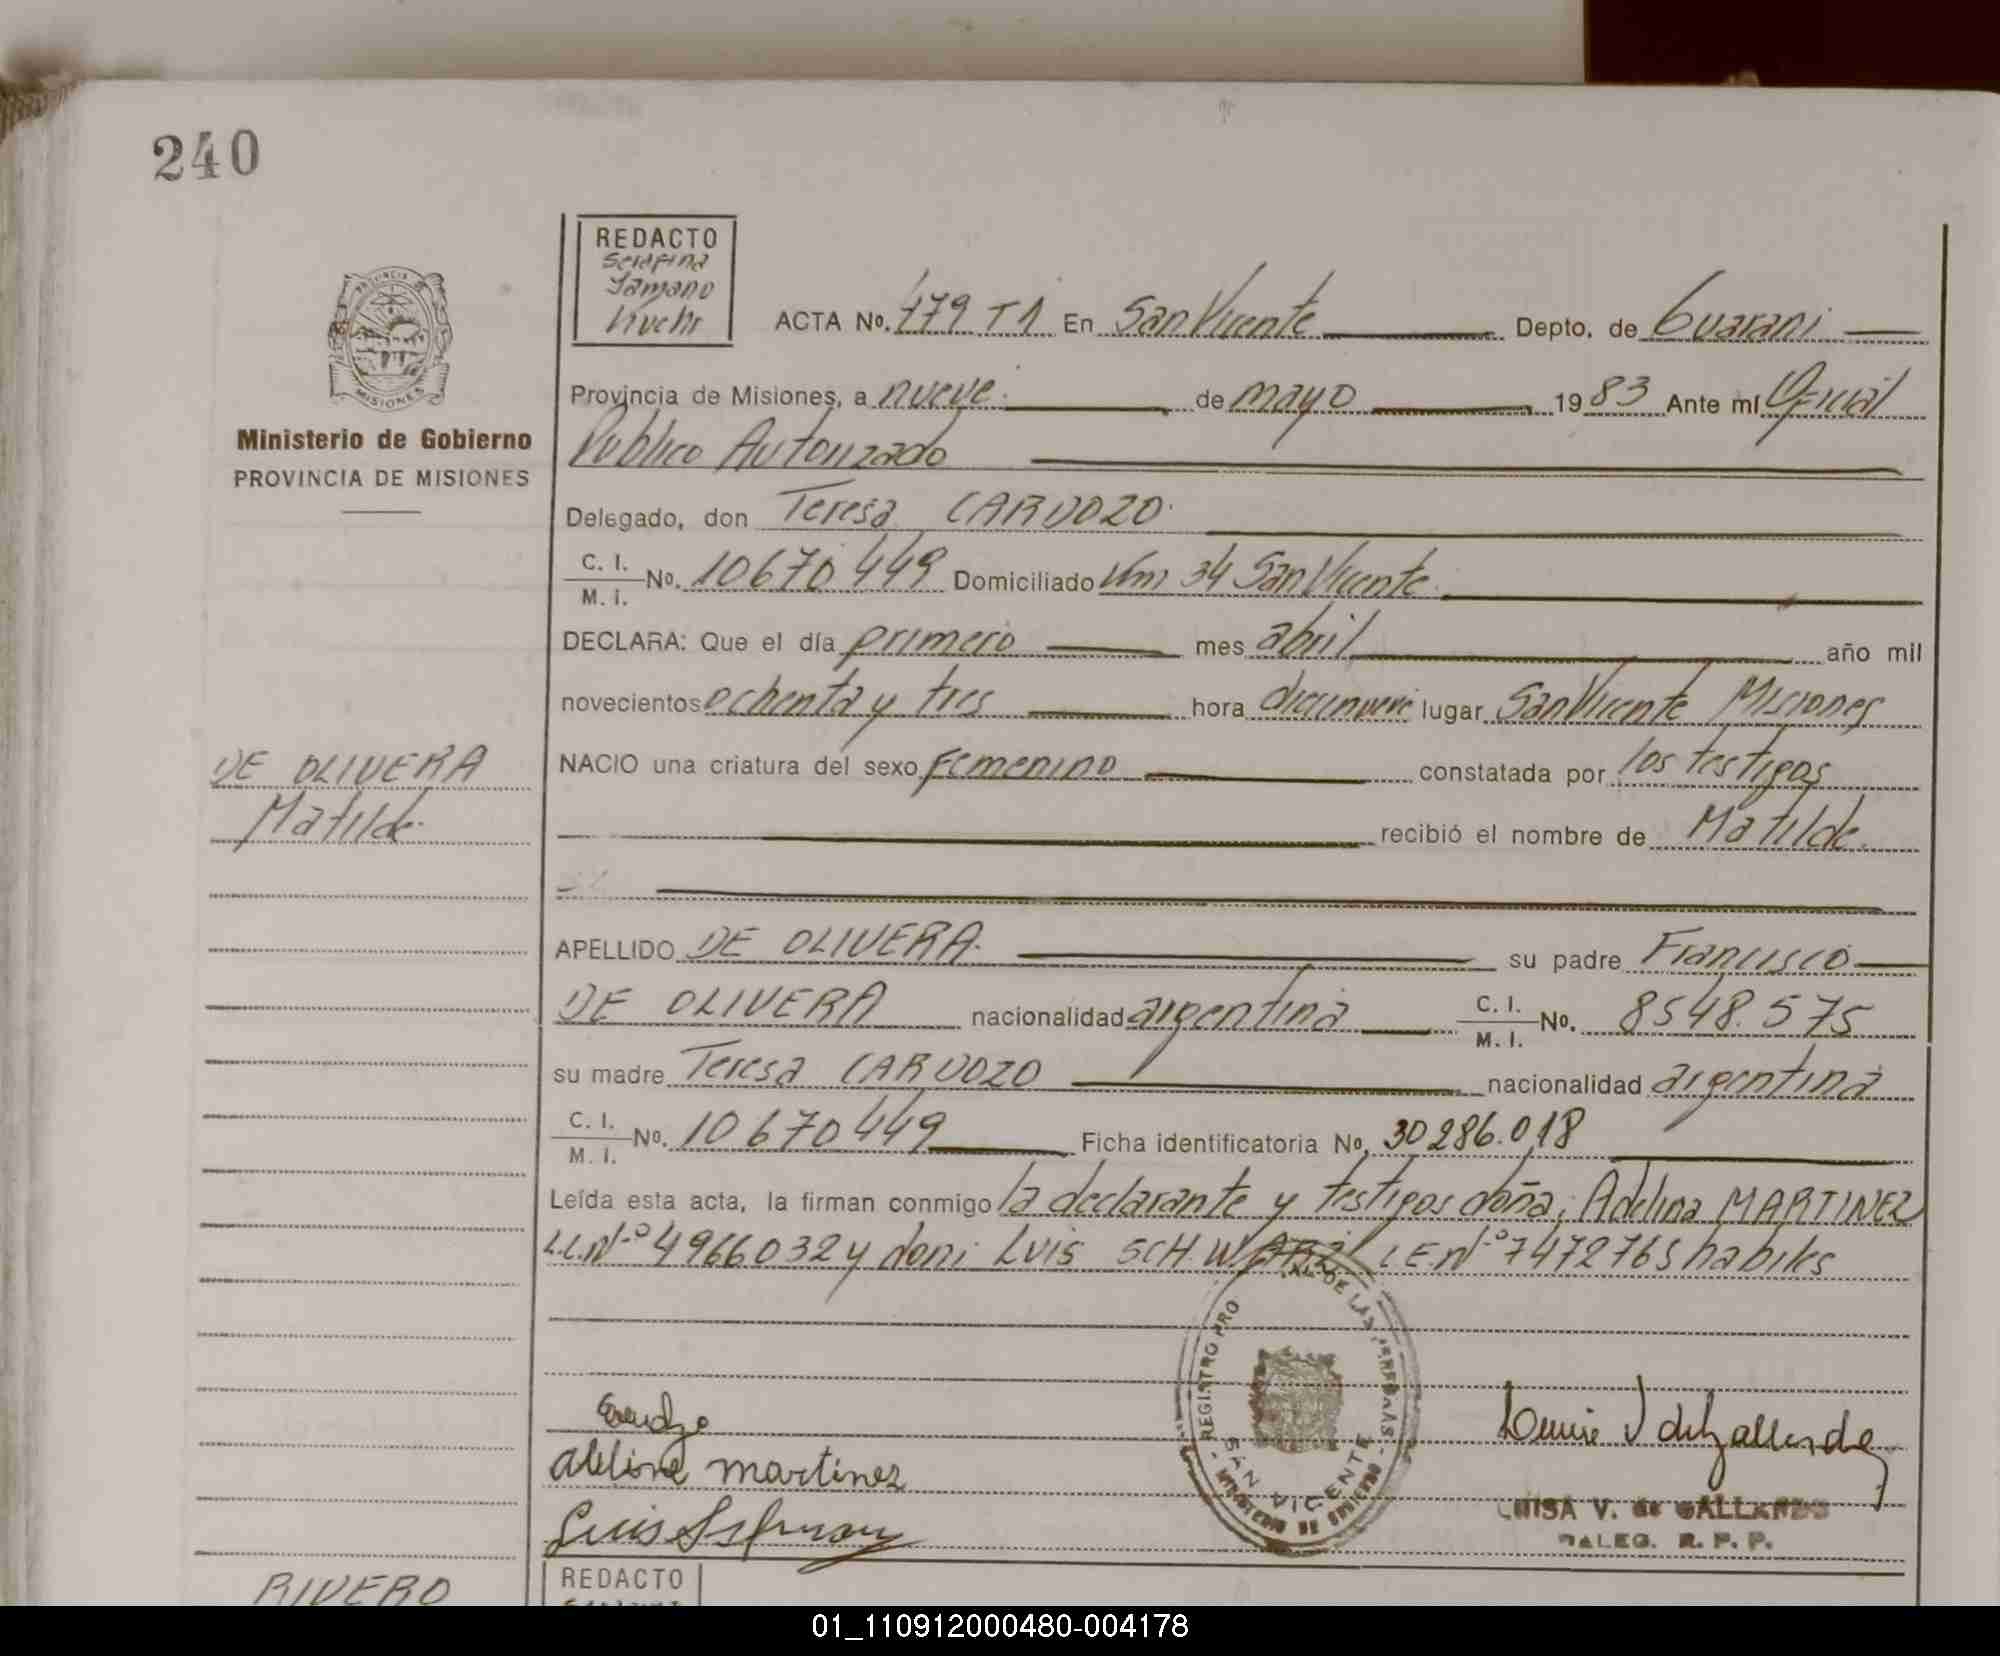 240
REDACTO
Serafina
Tamano
Kuchr
PROVINCIA
MISIONES
Ministerio de Gobierno
PROVINCIA DE MISIONES
ACTA No. 479 T 1 En San Vicente Depto, de Guarani
Provincia de Misiones, a nueve. de mayo 1983 Ante mí Oficial
Publico Autorizado
Delegado, don Teresa CARDOZO.
C. I.
M. I. No. 10670449 Domiciliado Km 34 San Vicente.
DECLARA: Que el día primero mes abril año mil
novecientos ochenta y tres hora diecinueve lugar San Vicente Misiones
NACIO una criatura del sexo Femenino constatada por los testigos
recibió el nombre de Matilde.
DE OLIVERA
Matilde.
APELLIDO DE OLIVERA. su padre Francisco
DE OLIVERA nacionalidad argentina C. I.
M. I. No. 8548.575
su madre Teresa CARDOZO nacionalidad argentina
C. I.
M. I. No. 10670449 Ficha identificatoria No, 30286.018
Leída esta acta, la firman conmigo la declarante y testigos doña; Adelina MARTINEZ
L.C.Nº 4966032 y don: Luis SCHWARZ L.E.Nº 7472765 habiles
REGISTRO PRO DE LAS PERSONAS
SAN VICENTE
MINISTERIO DE GOBIERNO
Adelina martinez
Luis
LUISA V. de GALLARDO
DALEG. R. P. P.
RIVERO
REDACTO
01_110912000480-004178